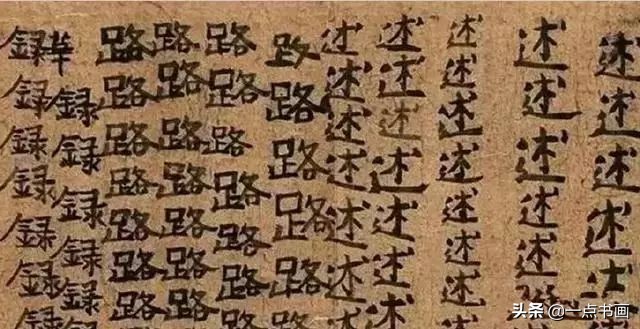 述述述述述述
述述述述述述
述述述述述述述
述述述述述述述
述述述述述述述
路路路路路
路路路路路路路
路路路路路路路
路路路路路路路
華録録録録録録
録録録録録録録
头条 @一点书画